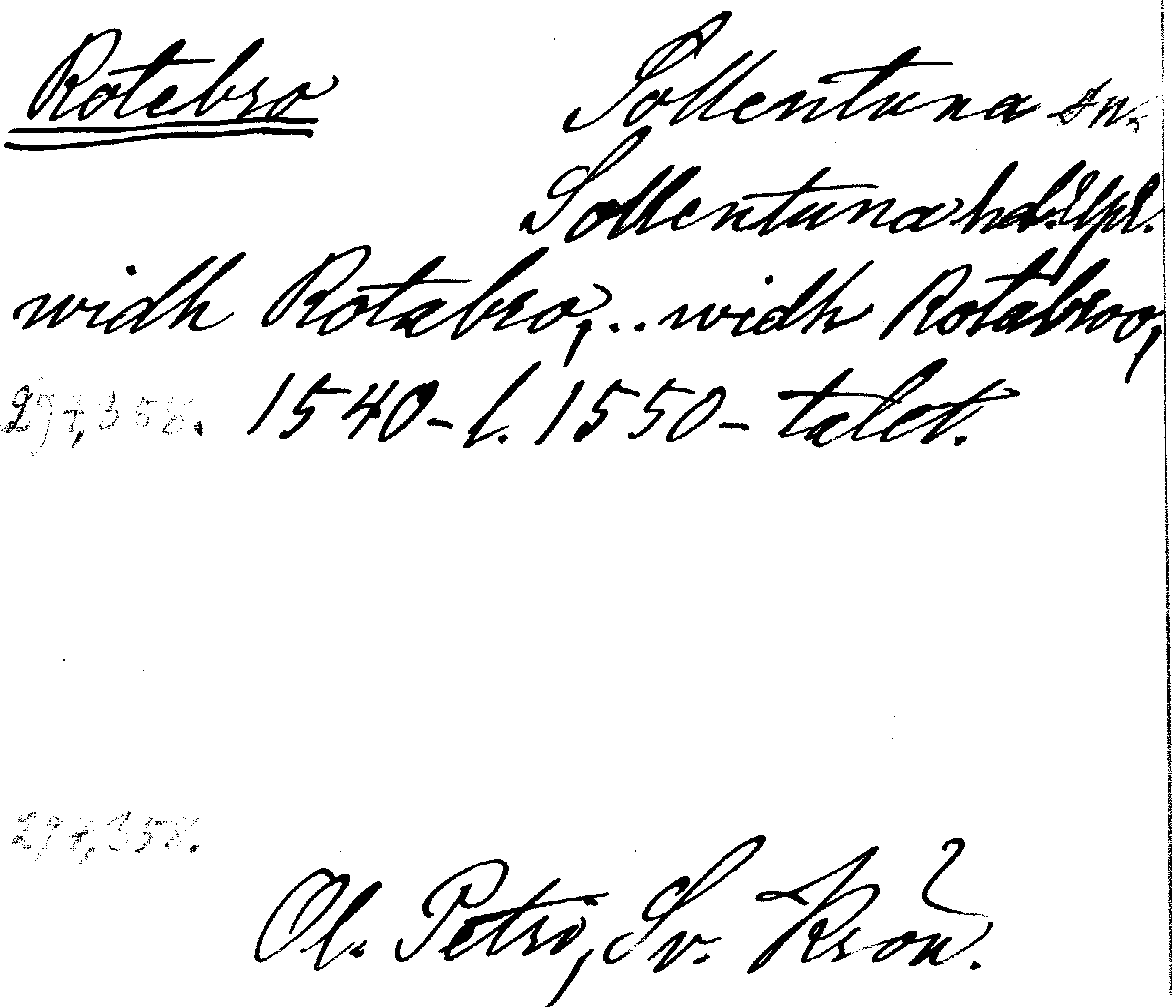 Rotebro Sollentuna sn.
Sollentuna hd. Upl.
widh Rotabro, .. widh Rotabroo,
297, 358. 1540- l. 1550- talet.
297, 358.
Ol. Petri, Sv. Krön.